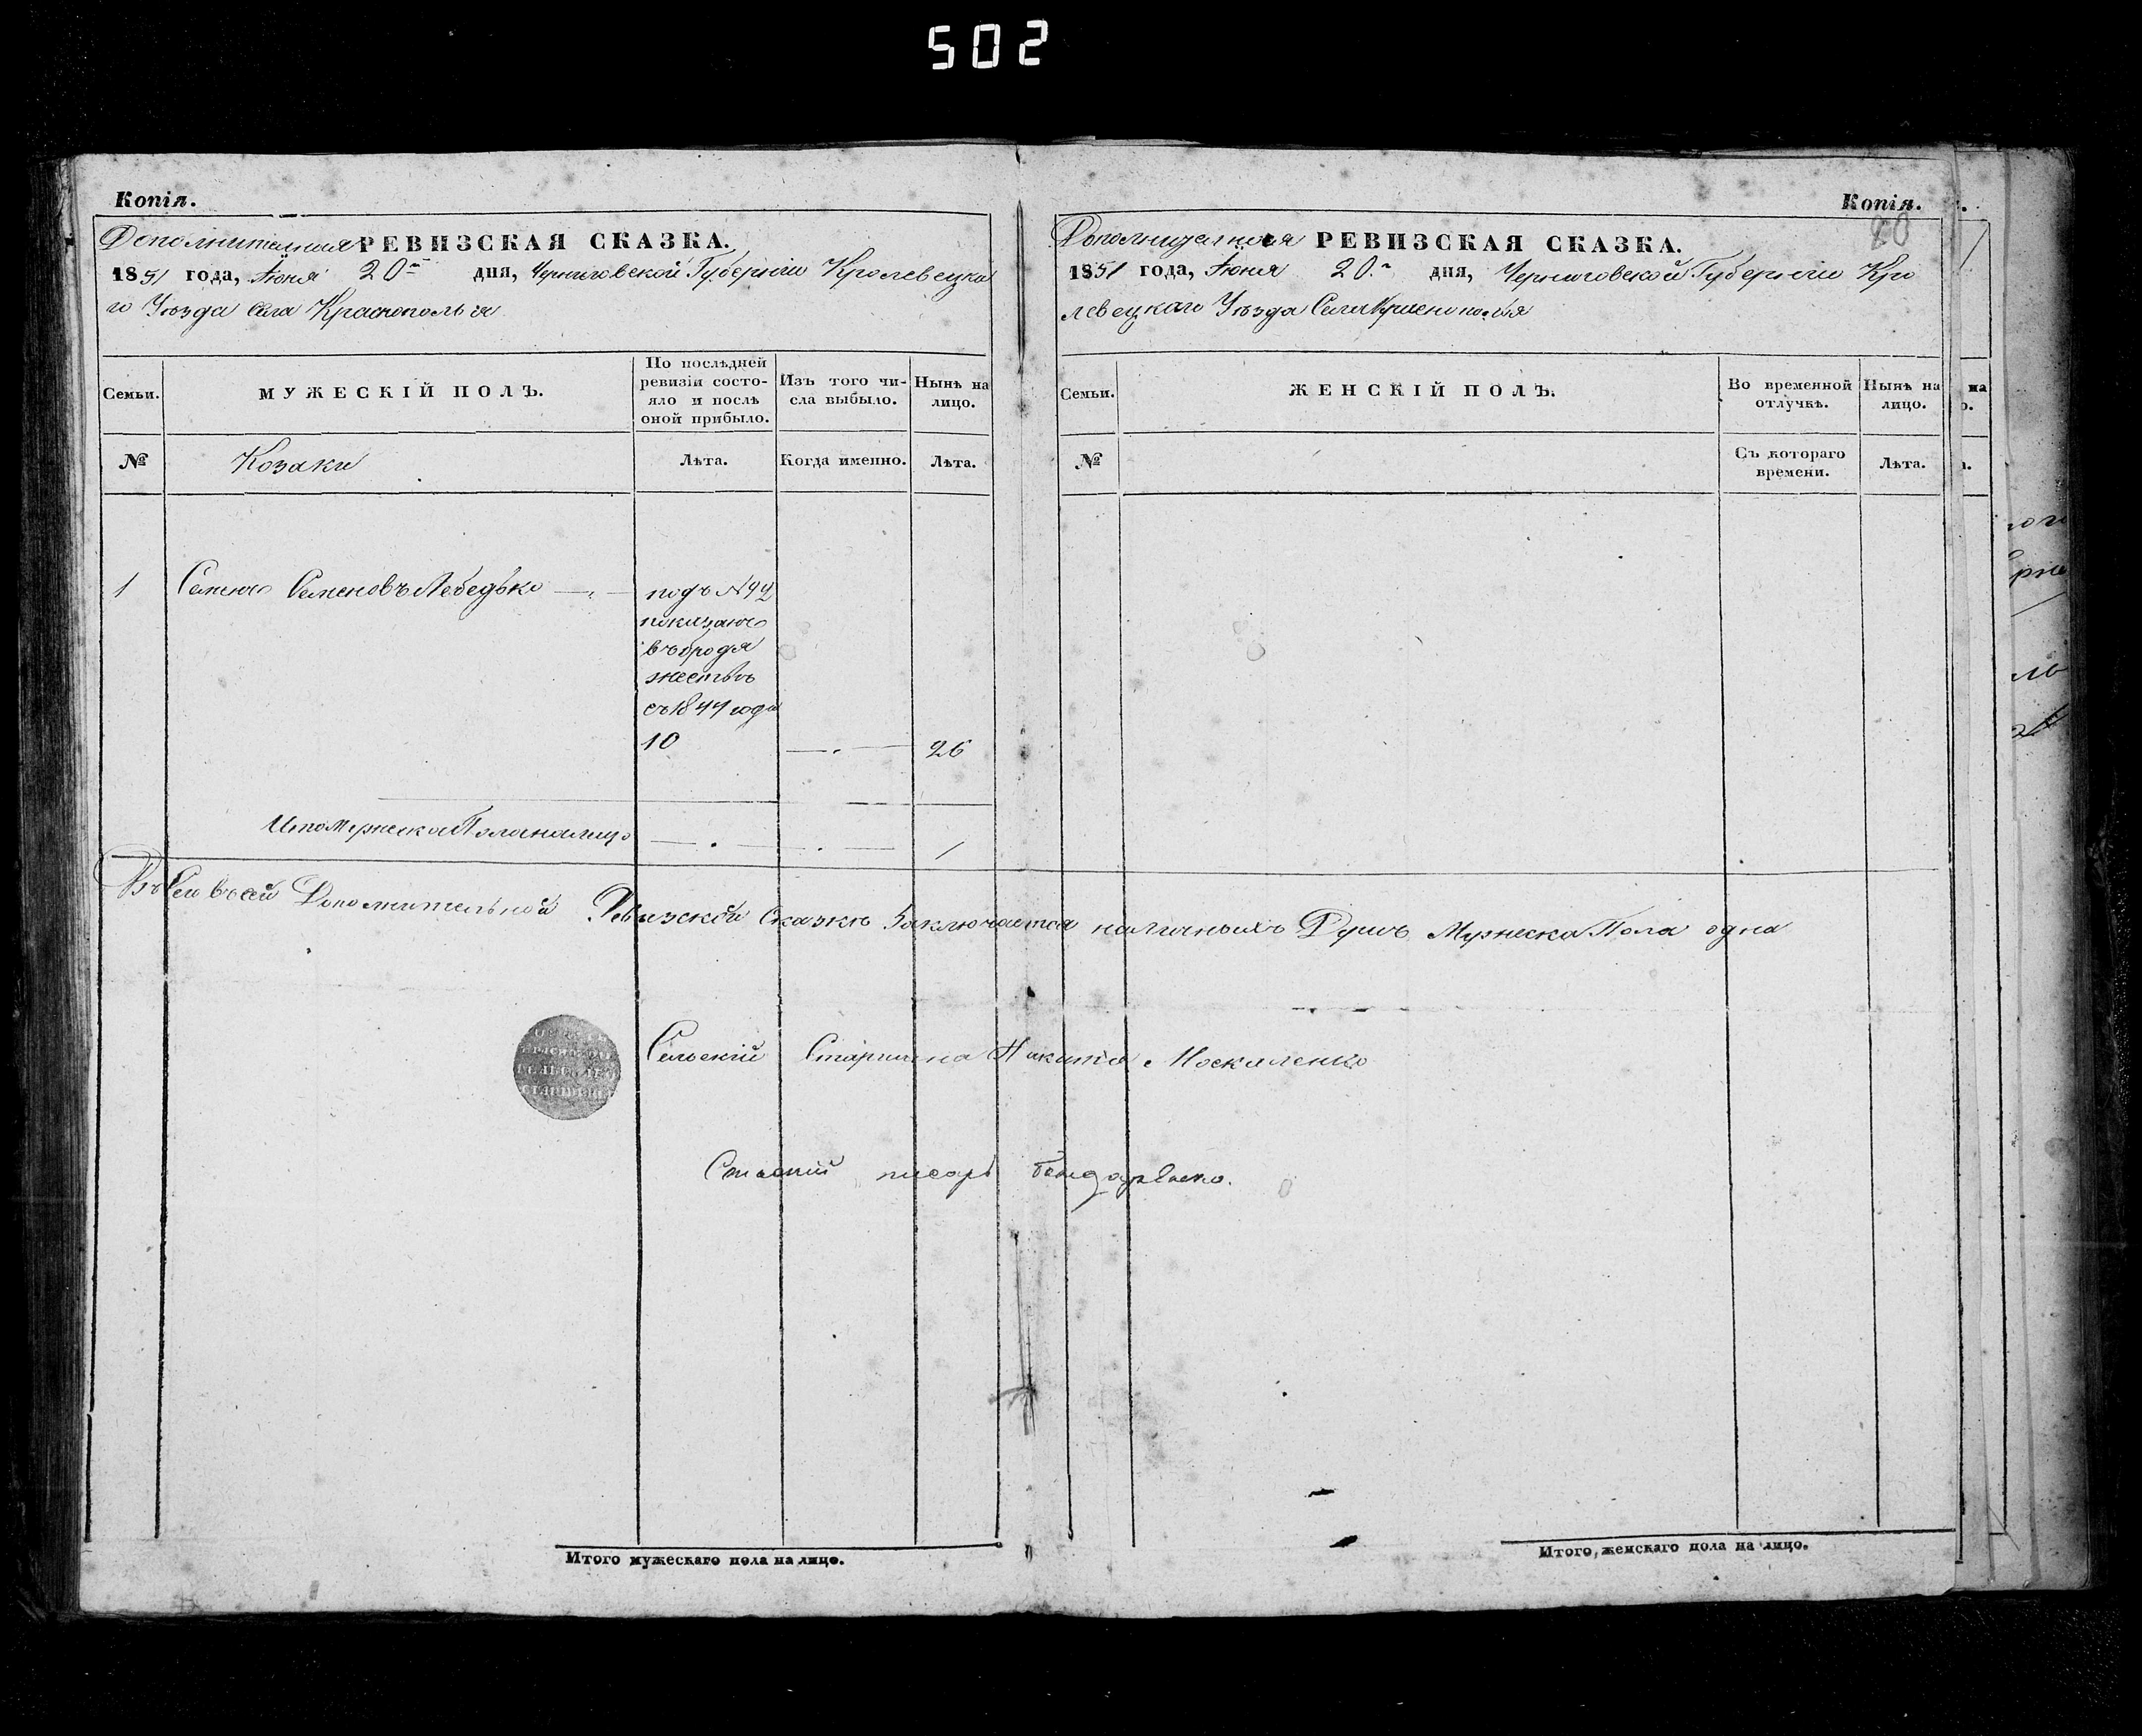 502
Копія.
Дополнительная РЕВИЗСКАЯ СКАЗКА.
1851 года, Июня 20го дня, Черниговской Губерніи Кролевецка
го Уѣзда Села Краснополья
Семьи.
МУЖЕСКІЙ ПОЛЪ.
По послѣдней
ревизіи состо-
яло и послѣ
оной прибыло.
Изъ того чи-
сла выбыло.
Нынѣ на
лицо.
№
Козаки
Лѣта.
Когда именно.
Лѣта.
1 Семенъ Семеновъ Лебедько
подъ №92
показанъ
въ бродя
жествѣ
съ 1844 года
10 26
Итого Мужеска Пола на лицо 1
Копія.
80
Дополнительная РЕВИЗСКАЯ СКАЗКА.
1851 года, Июня 20.го дня, Черниговской Губерніи Кро
левецкаго Уѣзда Села Краснополья
Семьи.
ЖЕНСКІЙ ПОЛЪ.
Во временной
отлучкѣ.
Нынѣ на
лицо.
№
Съ котораго
времени.
Лѣта.
сей Дополнительной Ревизской Сказкѣ Заключается наличныхъ Душъ Мужеска Пола одна
Сельскій Старшина Никита Москаленко
писарь Бондаренко.
Итого мужескаго пола на лицо.
Итого женскаго пола на лицо.